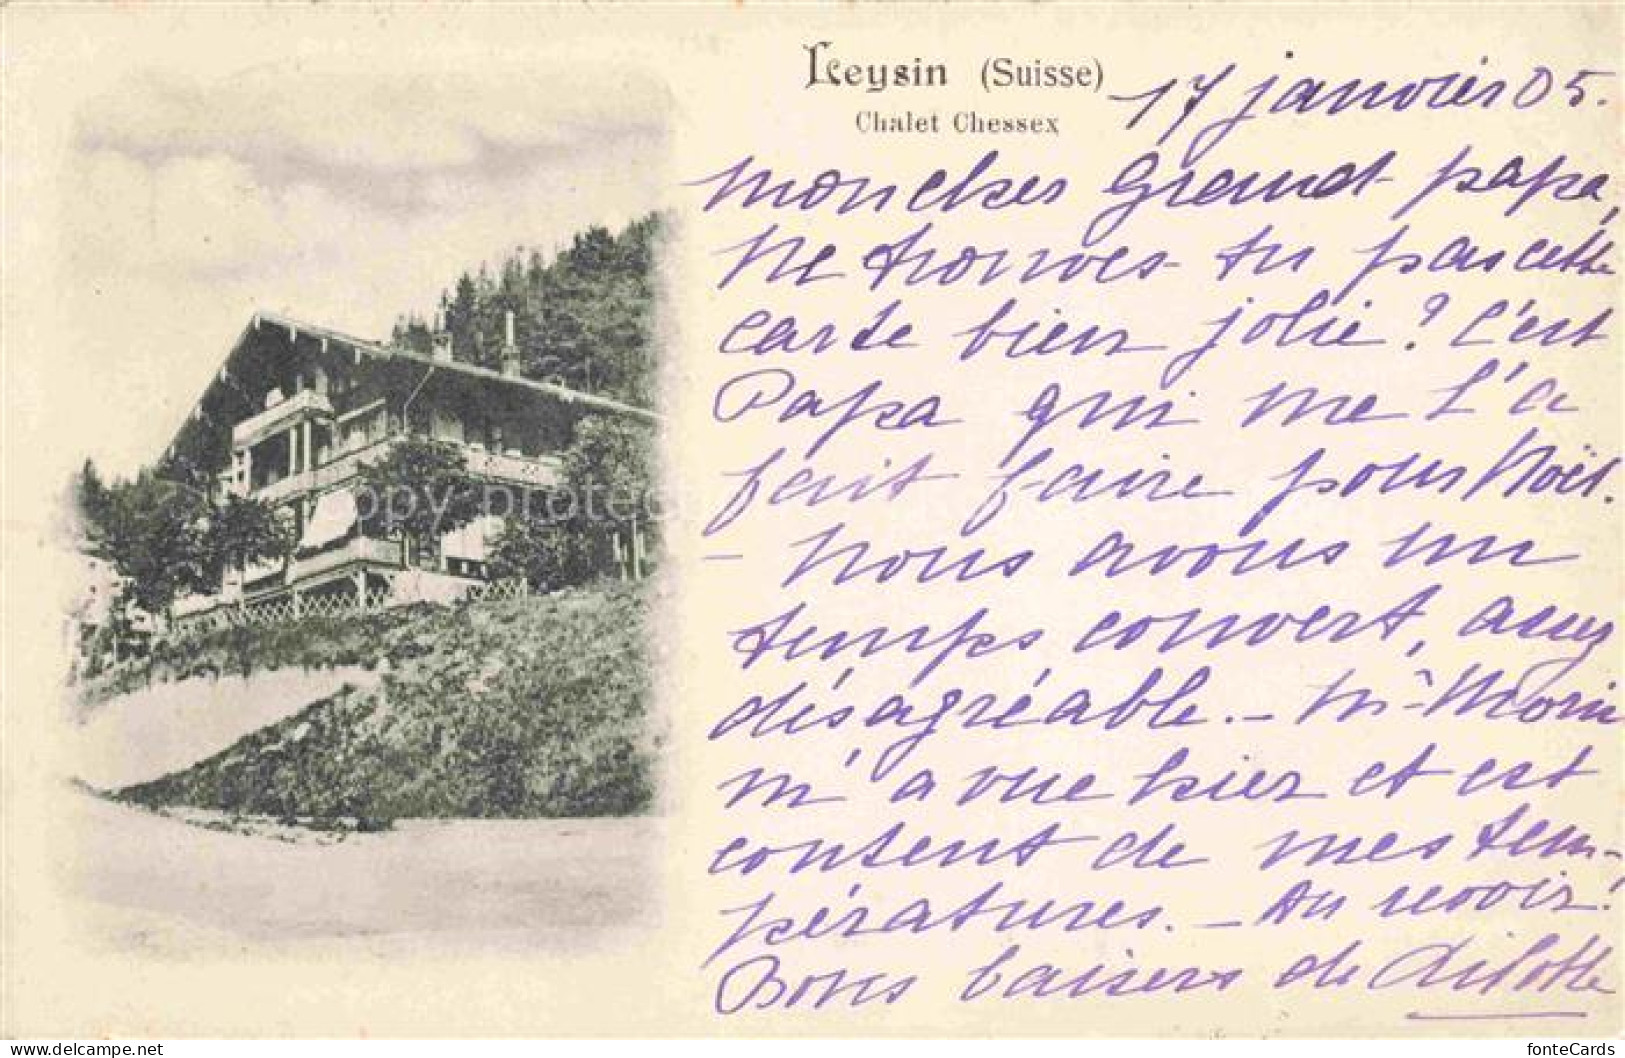 Leysin (Suisse)
Chalet Chessex
17 janvier 05.
Mon cher Grand-papa,
Ne trouves-tu pas cette
carte bien jolie? C'est
Papa qui me l'a
fait faire pour Noël.
- Nous avons un
temps couvert, assez
désagréable. - Mr Morin
m'a vue hier et est
content de mes tem-
pératures. - Au revoir!
Bons baisers de Lilotte
delcampe.net
fonteCards